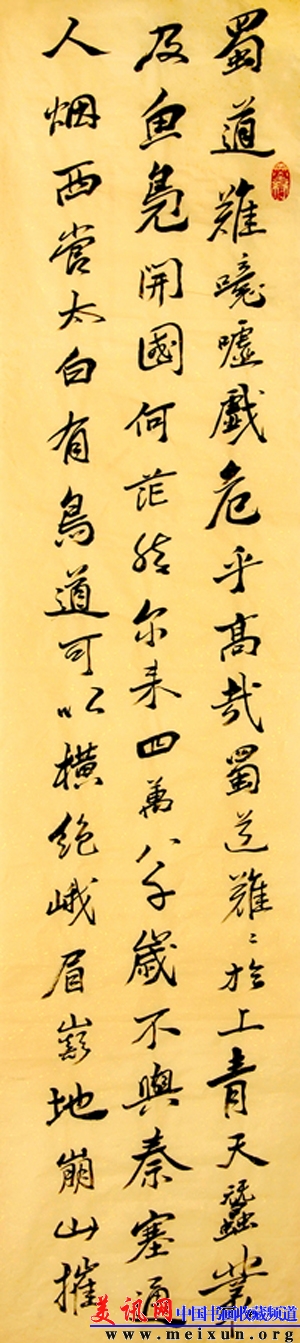 蜀道難噫嘘戲危乎高哉蜀道難〻於上青天蠶叢
及魚凫開國何茫然尔来四萬八千歲不與秦塞通
人烟西當太白有鳥道可以橫絶峨眉巔地崩山摧
美讯网 中国书画收藏频道
www.meixun.org